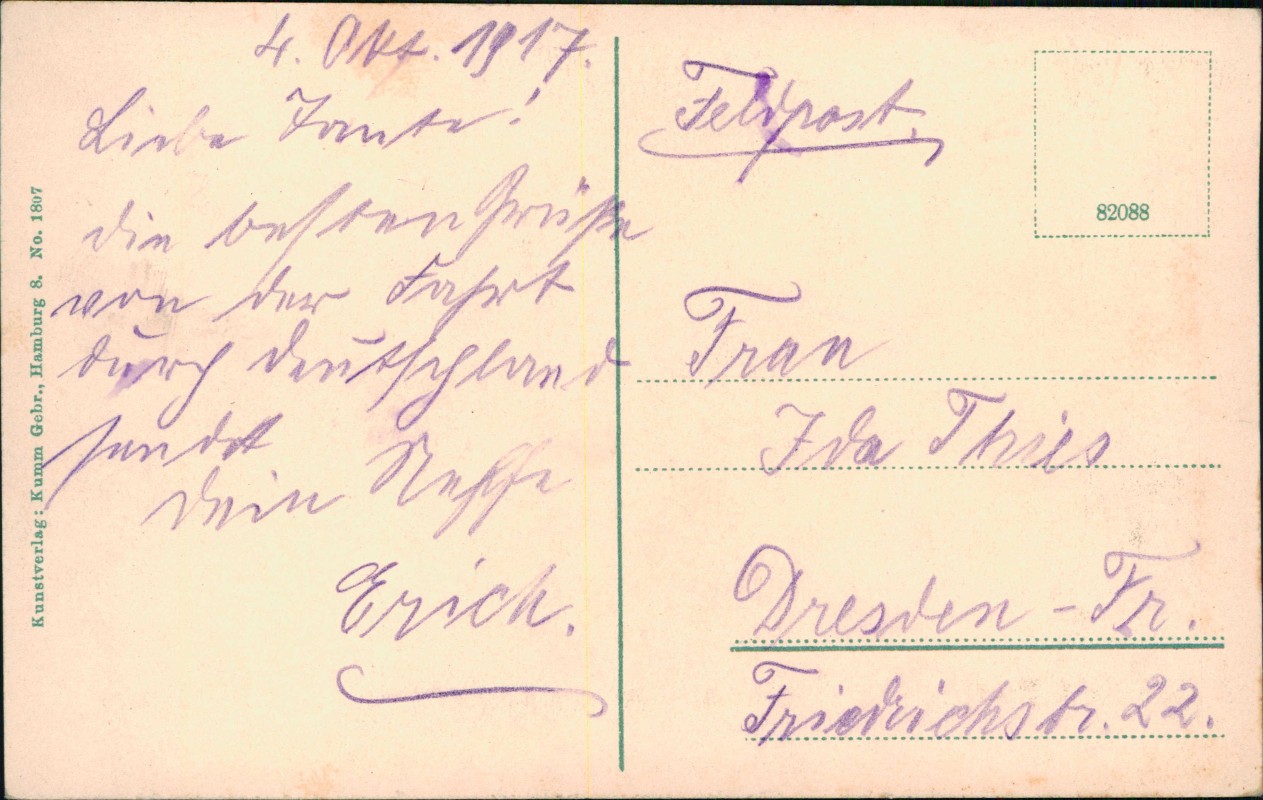 4. Okt. 1917.
Liebe Tante!
die besten Grüße
von der Fahrt
durch Deutschland
sendet
Dein Neffe
Erich.
Kunstverlag: Kumm Gebr., Hamburg 8. No. 1807
Feldpost.
82088
Frau
Ida Thies
Dresden-Fr.
Friedrichstr. 22.